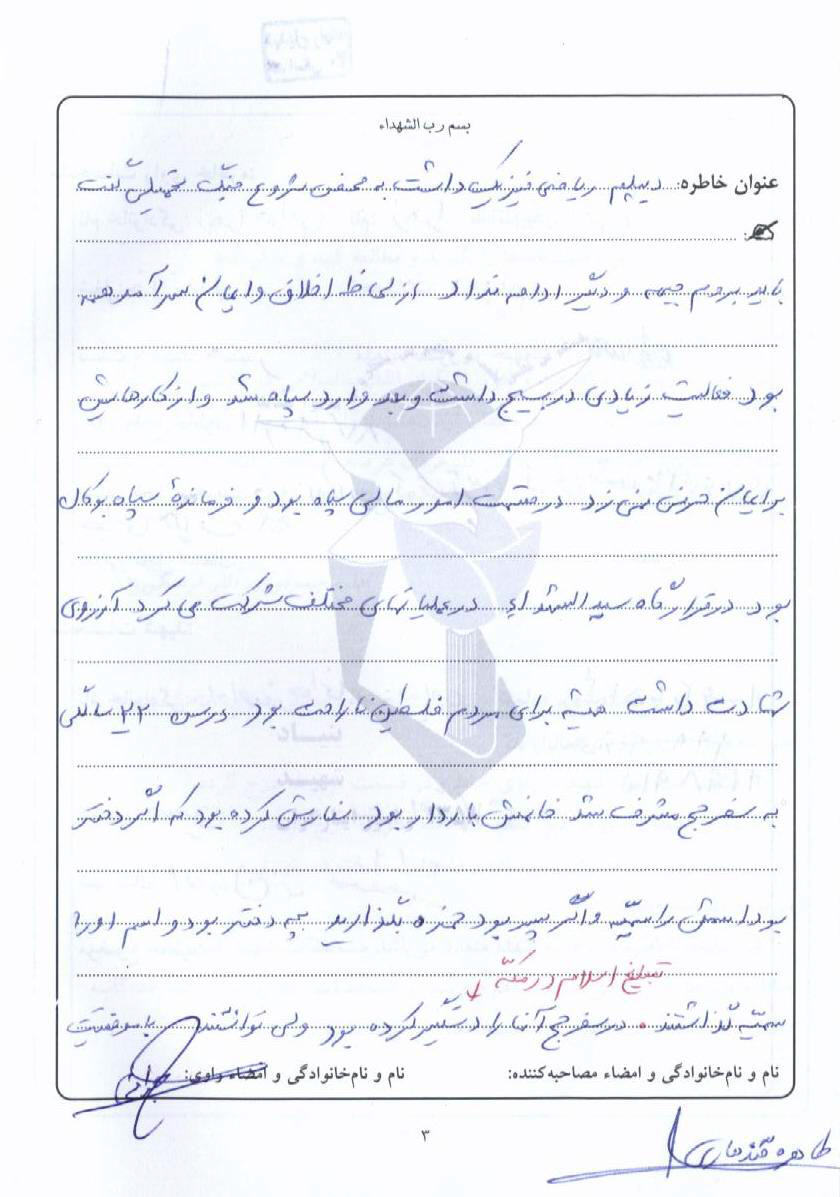 بسم رب الشهداء
عنوان خاطره: دیپلم ریاضی فیزیک داشت به محض شروع جنگ تحمیلی گفت
باید بروم جبهه و دیگر ادامه نداد از لحاظ اخلاق و ایمان سرآمد همه
بود فعالیت زیادی در بسیج داشت و بعد وارد سپاه شد و از کارهایش
برایمان حرفی نمی زد در قسمت امور مالی سپاه بود و فرماندهٔ سپاه بوکان
بود در قرارگاه سیدالشهداء در عملیاتهای مختلف شرکت می کرد آرزوی
شهادت داشت همیشه برای مردم فلسطین ناراحت بود در سن ۲۲ سالگی
به سفر حج مشرف شد خانمش باردار بود سفارش کرده بود که اگر دختر
بود اسمش را سمیّه و اگر پسر بود حمزه بگذارید بچه دختر بود و اسم او را
تبلیغ اسلام در مکّه
سمیّه گذاشتند. در سفر حج آنها را دستگیر کرده بود ولی توانستند با موفقیت
نام و نام‌خانوادگی و امضاء مصاحبه‌کننده:
نام و نام‌خانوادگی و امضاء راوی:
۳
طاهره قندهاری